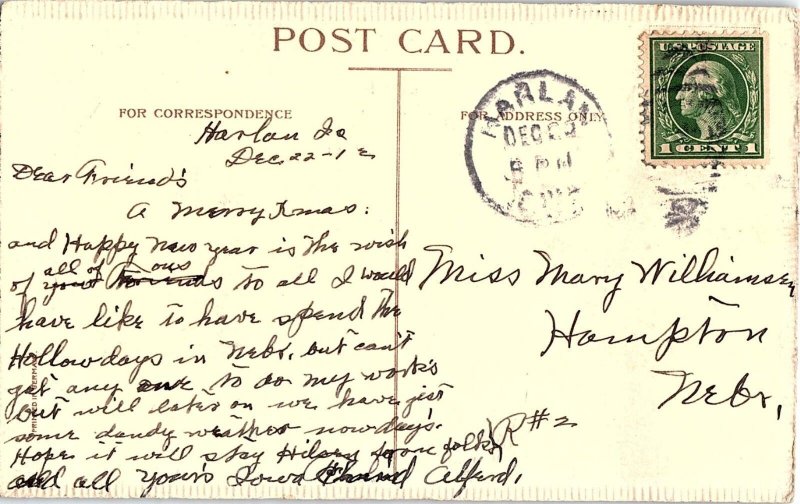 POST CARD.
FOR CORRESPONDENCE
FOR ADDRESS ONLY
U.S. POSTAGE
1 CENT 1
HARLAN
DEC 23
PM
Harlan Ia
Dec 22-12
Dear Friend's
a Merry Xmas:
and Happy new year is the wish
all of ous
of your friends to all I would
have like to have spend the
Hollow days in Nebr. but can't
get any one to do my work's
but will later on we have jist
some dandy weather now day's.
Hope it will stay
and all Your's Iowa Alfred.
Miss Mary Williamsen
Hampton
Nebr,
R#2